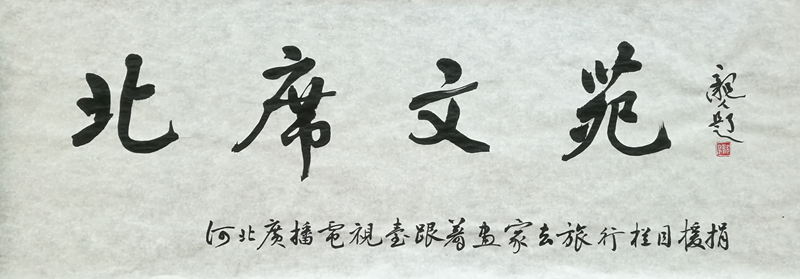 北席文苑
河北廣播電視臺跟着畫家去旅行栏目援捐